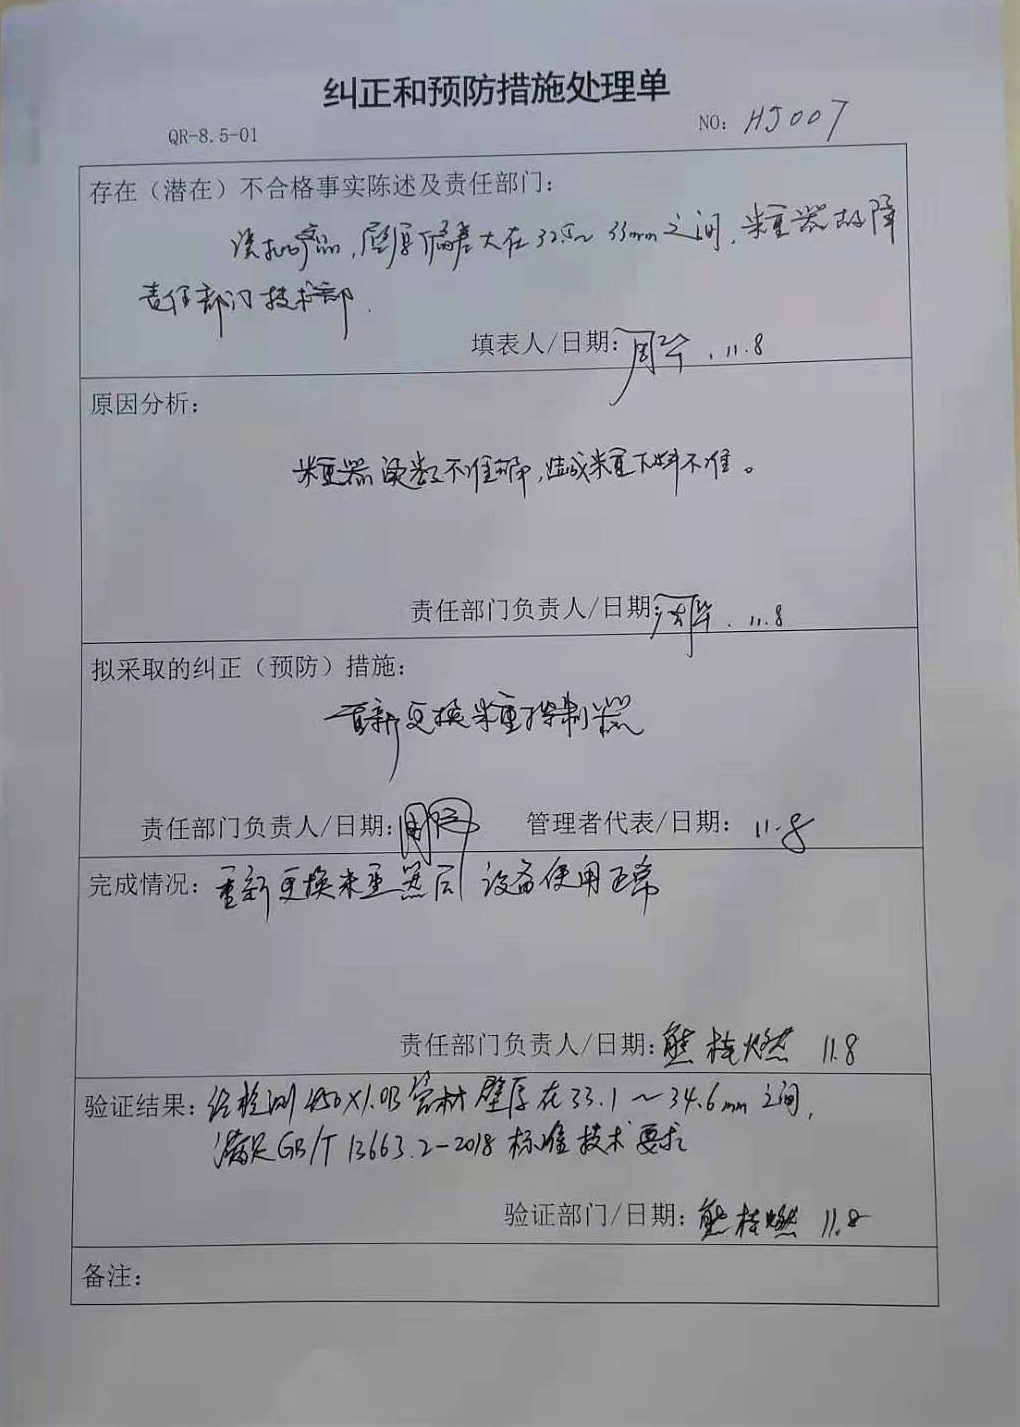 纠正和预防措施处理单
QR-8.5-01
NO: HJ007
存在（潜在）不合格事实陈述及责任部门：
该批产品，壁厚偏差大在32.5～35mm之间，米重器故障
责任部门技术部.
填表人/日期: 11.8
原因分析：
米重器读数不准确，造成米重下料不准。
责任部门负责人/日期 11.8
拟采取的纠正（预防）措施：
重新更换米重控制器
责任部门负责人/日期: 管理者代表/日期: 11.8
完成情况: 重新更换米重器后 设备使用正常
责任部门负责人/日期: 熊桂燃 11.8
验证结果: 经检测450X1.0B管材壁厚在33.1～34.6mm之间,
满足GB/T 13663.2-2018标准技术要求
验证部门/日期: 熊桂燃 11.8
备注：